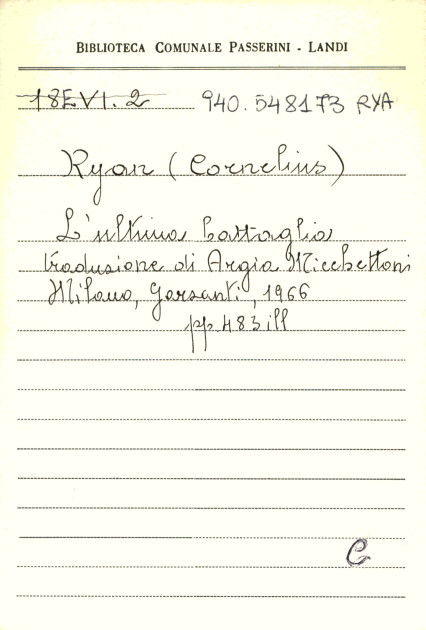 BIBLIOTECA COMUNALE PASSERINI - LANDI
18EVI.2 940.548173 RYA
Ryan (Cornelius)
L'ultima battaglia
traduzione di Argia Micchettoni
Milano, Garzanti, 1966
pp. 483 ill
C